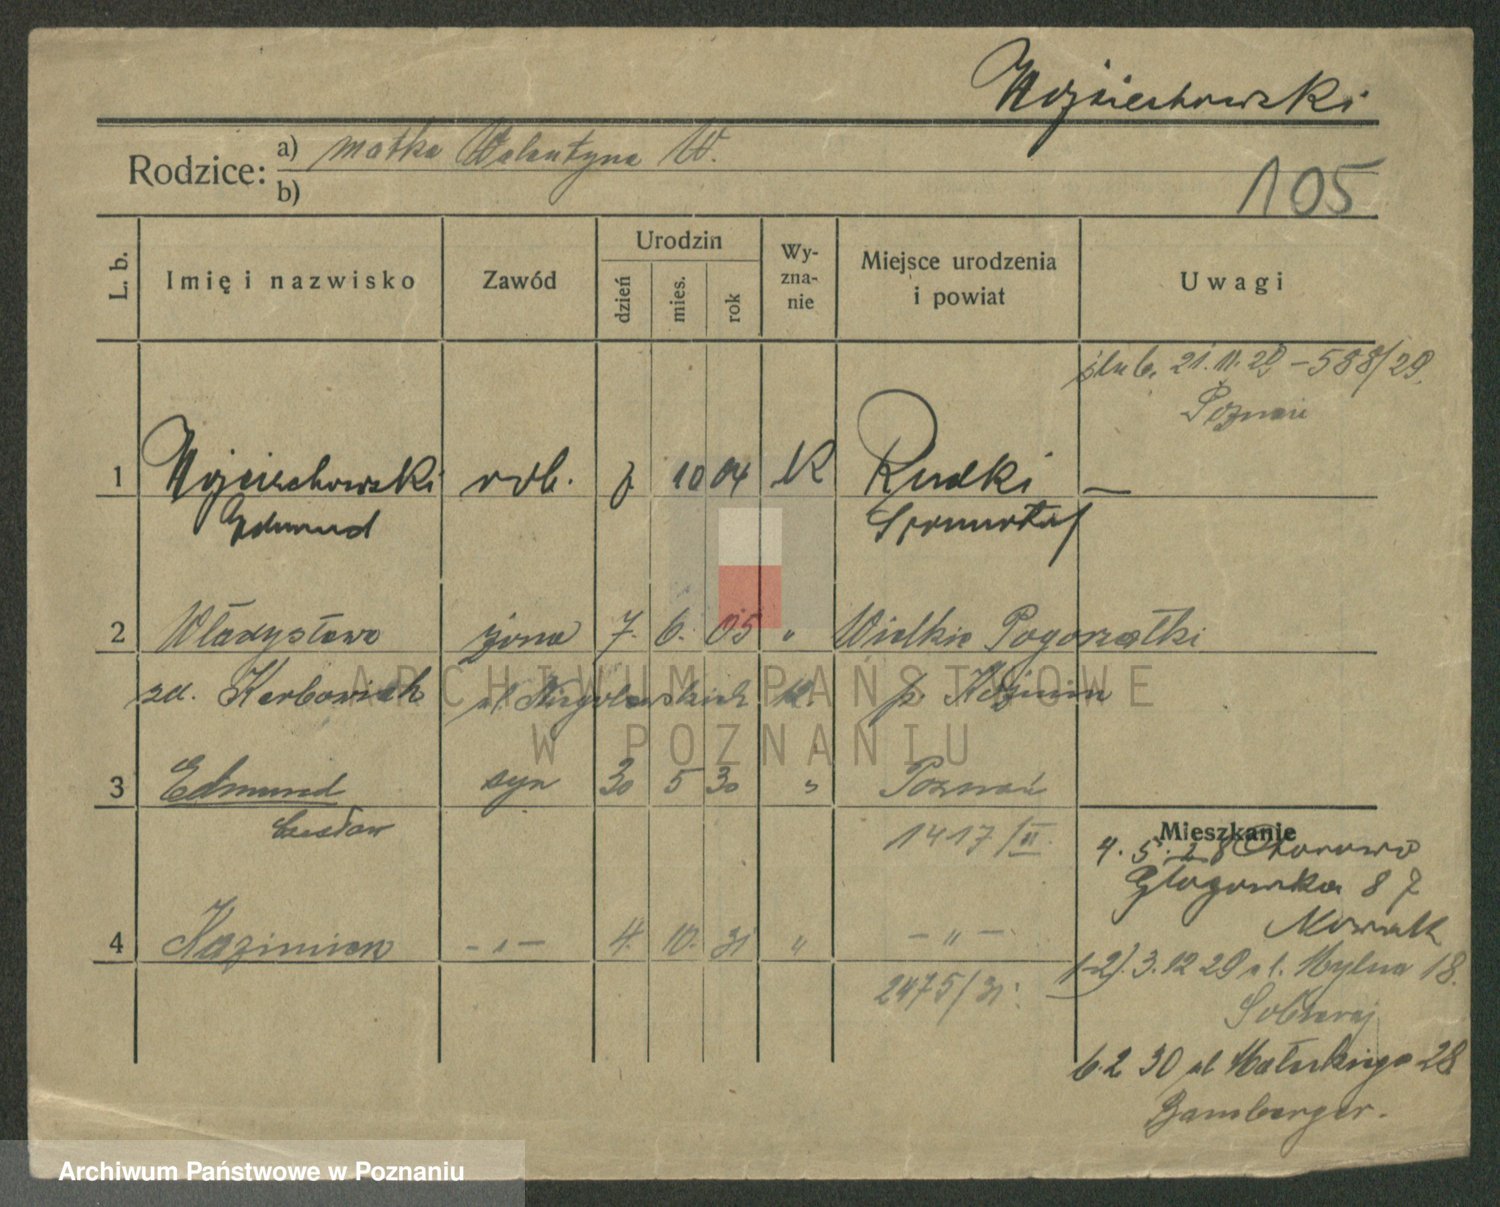 Wojciechowski
Rodzice: a) matka Walentyna W.
b)
105
L. b.
Imię i nazwisko
Zawód
Urodzin
dzień
mies.
rok
Wy-
zna-
nie
Miejsce urodzenia
i powiat
Uwagi
ślub. 21.11.29 – 588/29.
Poznań
1 Wojciechowski rob. 10 04 K Rudki —
Edmund
2 Władysława żona 7. 6. 05 " Wielkie Pogorzałki
zd. Karbowiak ul. Niegolewskich K. p. Koźmin
3 Edmund syn 30 5 30 " Poznań
Czesław 1417/VI.
Mieszkanie
4. 5. 28
Głogowska 87
Nowak
4 Kazimierz – " – 4. 10. 31 " – " –
2475/31.
1-2). 3.12 29 ul. Mylna 18.
6.2 30 ul Małeckiego 28
Bamberger.
ARCHIWUM PAŃSTWOWE
W POZNANIU
Archiwum Państwowe w Poznaniu